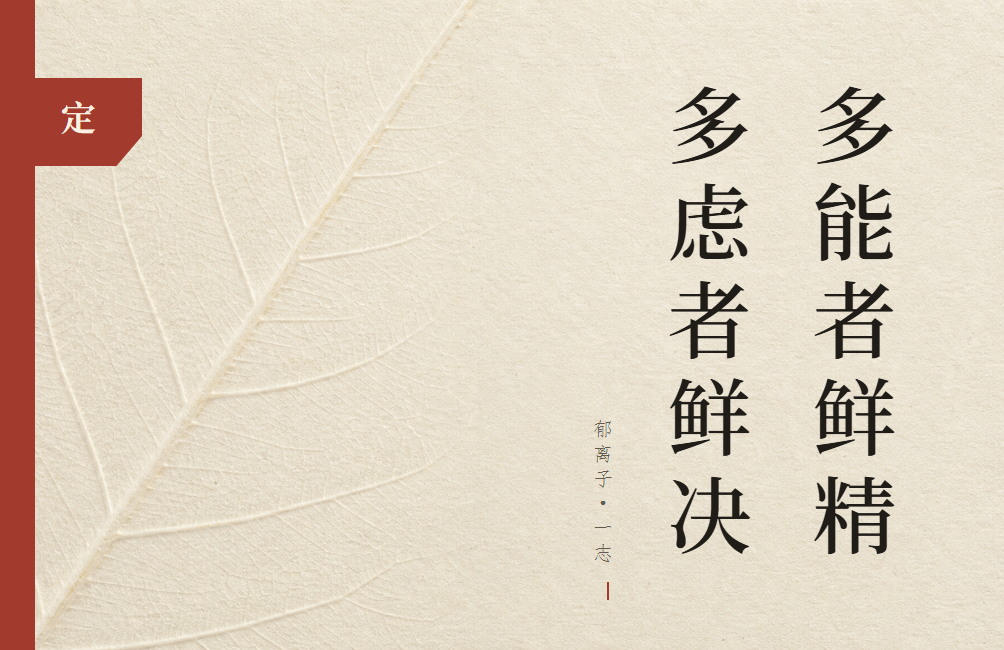 定
多能者鲜精
多虑者鲜决
郁离子·一志